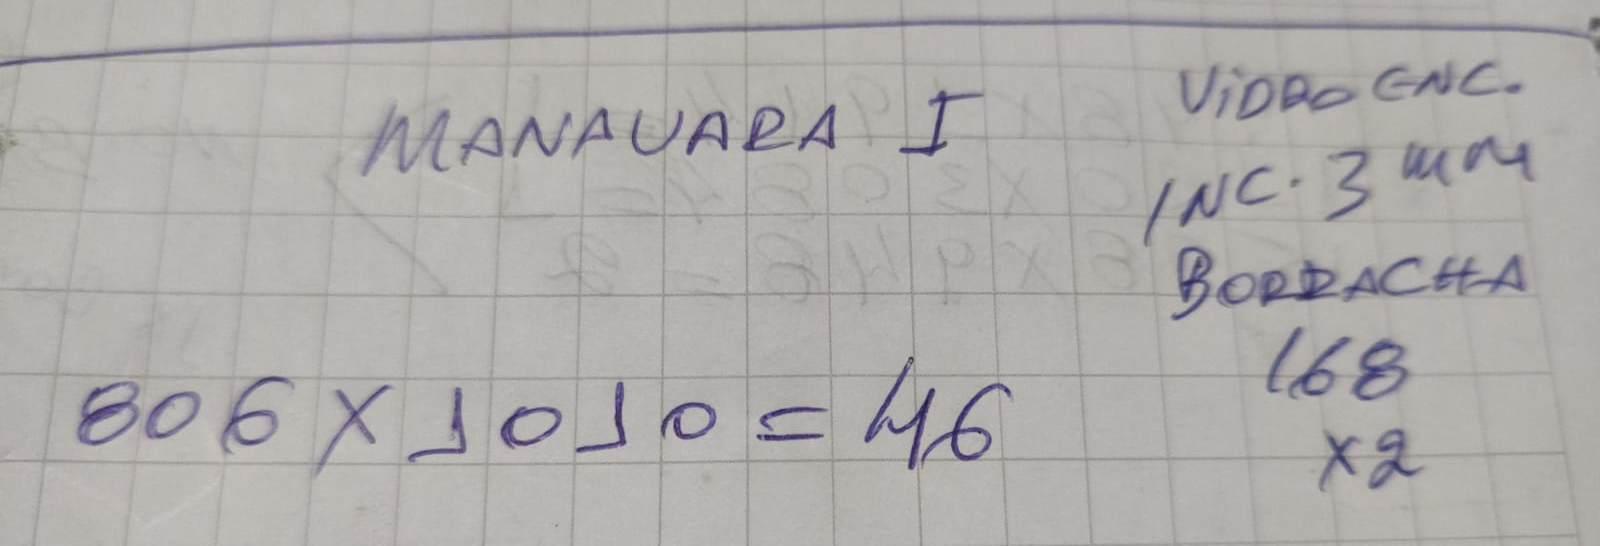 MANAUARA I
806 X 1010 = 46
VIDRO ENC.
INC. 3 mm
BORRACHA
168
X2